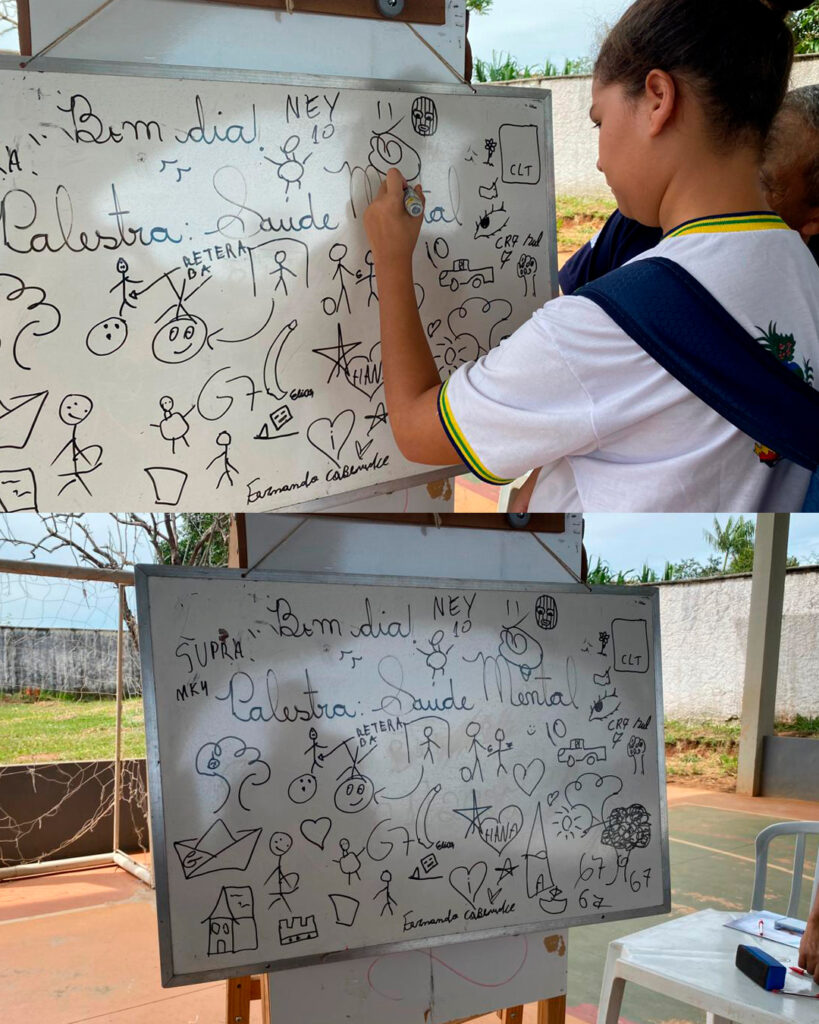 Bom dia!
NEY
10
RA
CLT
Palestra: Saúde Mental
RETERA
BA
10
CR7
7
G7
HANA
i
Fernando
Bom dia!
NEY
10
SUPRA
MK4
CLT
Palestra: Saúde Mental
RETERA
BA
10
CR7
7
G7
HANA
i
67
67
67
Fernando